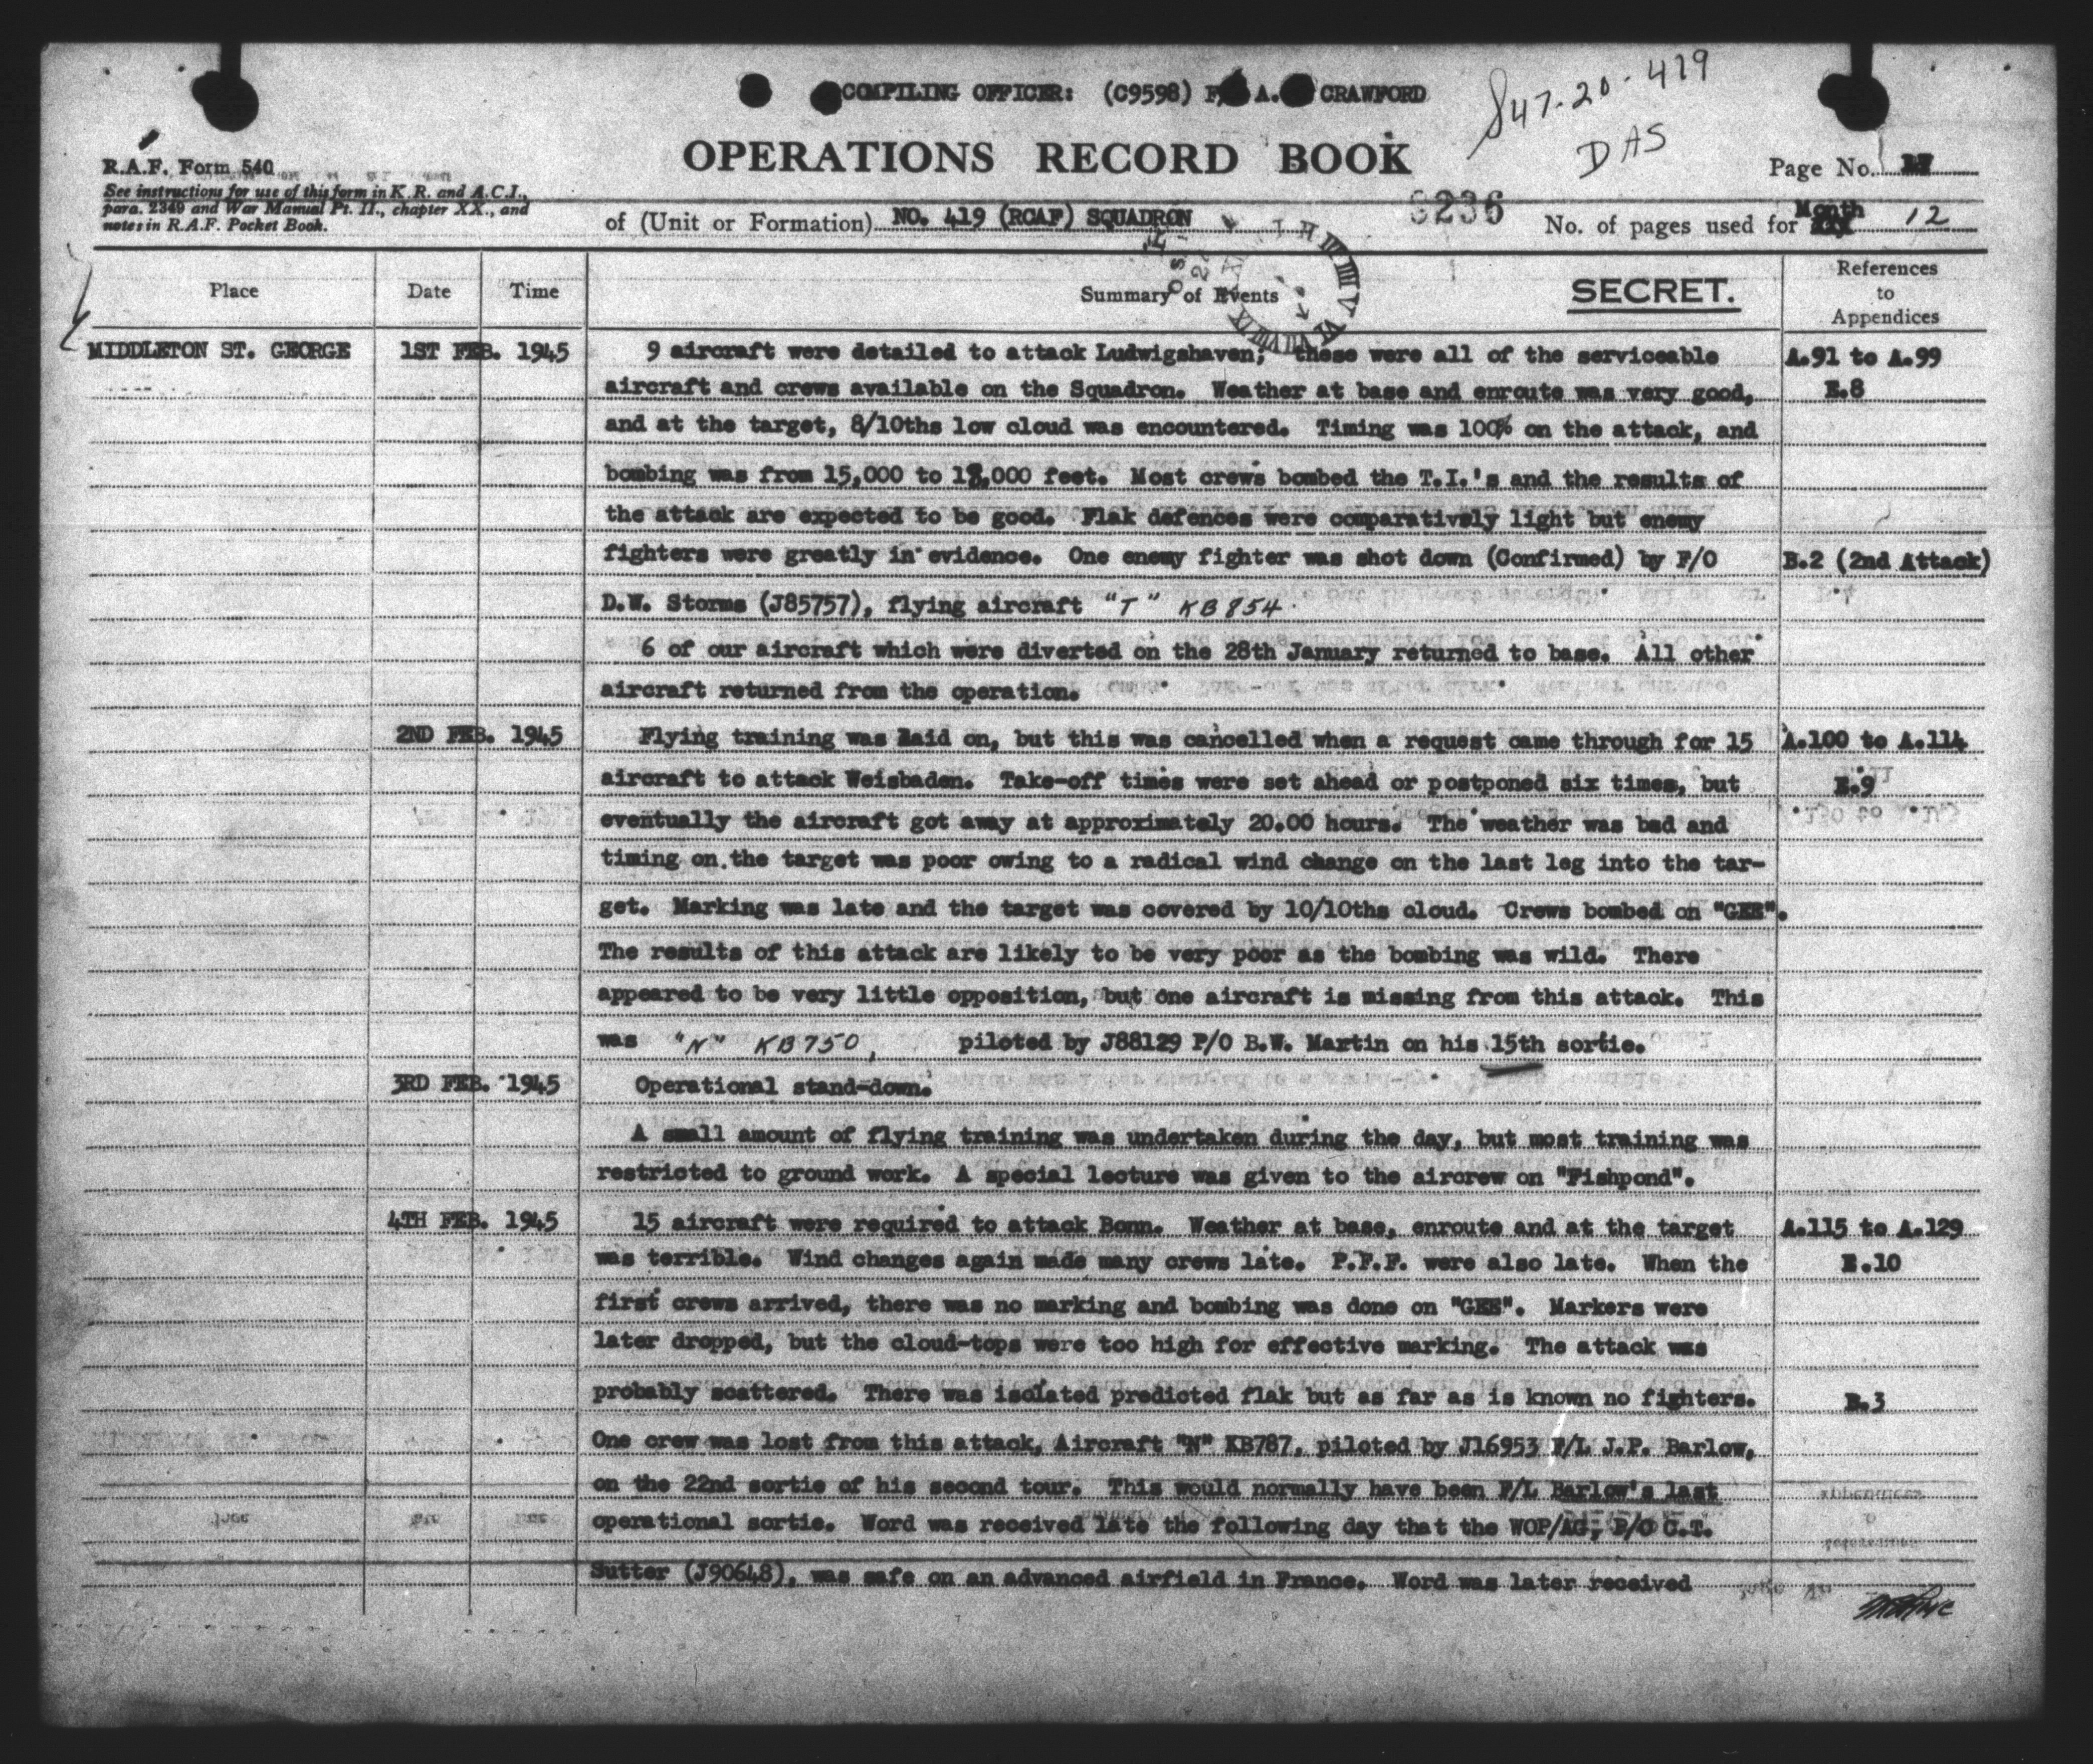 COMPILING OFFICER: (C9598) F/ A. CRAWFORD
847-20-419
DAS
OPERATIONS RECORD BOOK
R.A.F. Form 540
See instructions for use of this form in K.R. and A.C.I.,
para. 2349 and War Manual Pt. II., chapter XX., and
notes in R.A.F. Pocket Book.
Page No.
of (Unit or Formation) NO. 419 (RCAF) SQUADRON
3236
No. of pages used for Month 12
Place Date Time Summary of Events SECRET. References to Appendices
MIDDLETON ST. GEORGE 1ST FEB. 1945 9 aircraft were detailed to attack Ludwigshaven; these were all of the serviceable A.91 to A.99
aircraft and crews available on the Squadron. Weather at base and enroute was very good, E.8
and at the target, 8/10ths low cloud was encountered. Timing was 100% on the attack, and
bombing was from 15,000 to 18,000 feet. Most crews bombed the T.I.'s and the results of
the attack are expected to be good. Flak defences were comparatively light but enemy
fighters were greatly in evidence. One enemy fighter was shot down (Confirmed) by F/O B.2 (2nd Attack)
D.W. Storms (J85757), flying aircraft "T" KB854.
6 of our aircraft which were diverted on the 28th January returned to base. All other
aircraft returned from the operation.
2ND FEB. 1945 Flying training was laid on, but this was cancelled when a request came through for 15 A.100 to A.114
aircraft to attack Weisbaden. Take-off times were set ahead or postponed six times, but E.9
eventually the aircraft got away at approximately 20.00 hours. The weather was bad and
timing on the target was poor owing to a radical wind change on the last leg into the tar-
get. Marking was late and the target was covered by 10/10ths cloud. Crews bombed on "GEE".
The results of this attack are likely to be very poor as the bombing was wild. There
appeared to be very little opposition, but one aircraft is missing from this attack. This
was "N" KB750, piloted by J88129 P/O B.W. Martin on his 15th sortie.
3RD FEB. 1945 Operational stand-down.
A small amount of flying training was undertaken during the day, but most training was
restricted to ground work. A special lecture was given to the aircrew on "Fishpond".
4TH FEB. 1945 15 aircraft were required to attack Bonn. Weather at base, enroute and at the target A.115 to A.129
was terrible. Wind changes again made many crews late. P.F.F. were also late. When the E.10
first crews arrived, there was no marking and bombing was done on "GEE". Markers were
later dropped, but the cloud-tops were too high for effective marking. The attack was
probably scattered. There was isolated predicted flak but as far as is known no fighters. B.3
One crew was lost from this attack, Aircraft "N" KB787, piloted by J16953 F/L J.P. Barlow,
on the 22nd sortie of his second tour. This would normally have been F/L Barlow's last
operational sortie. Word was received late the following day that the WOP/AG, P/O C.T.
Sutter (J90648), was safe on an advanced airfield in France. Word was later received